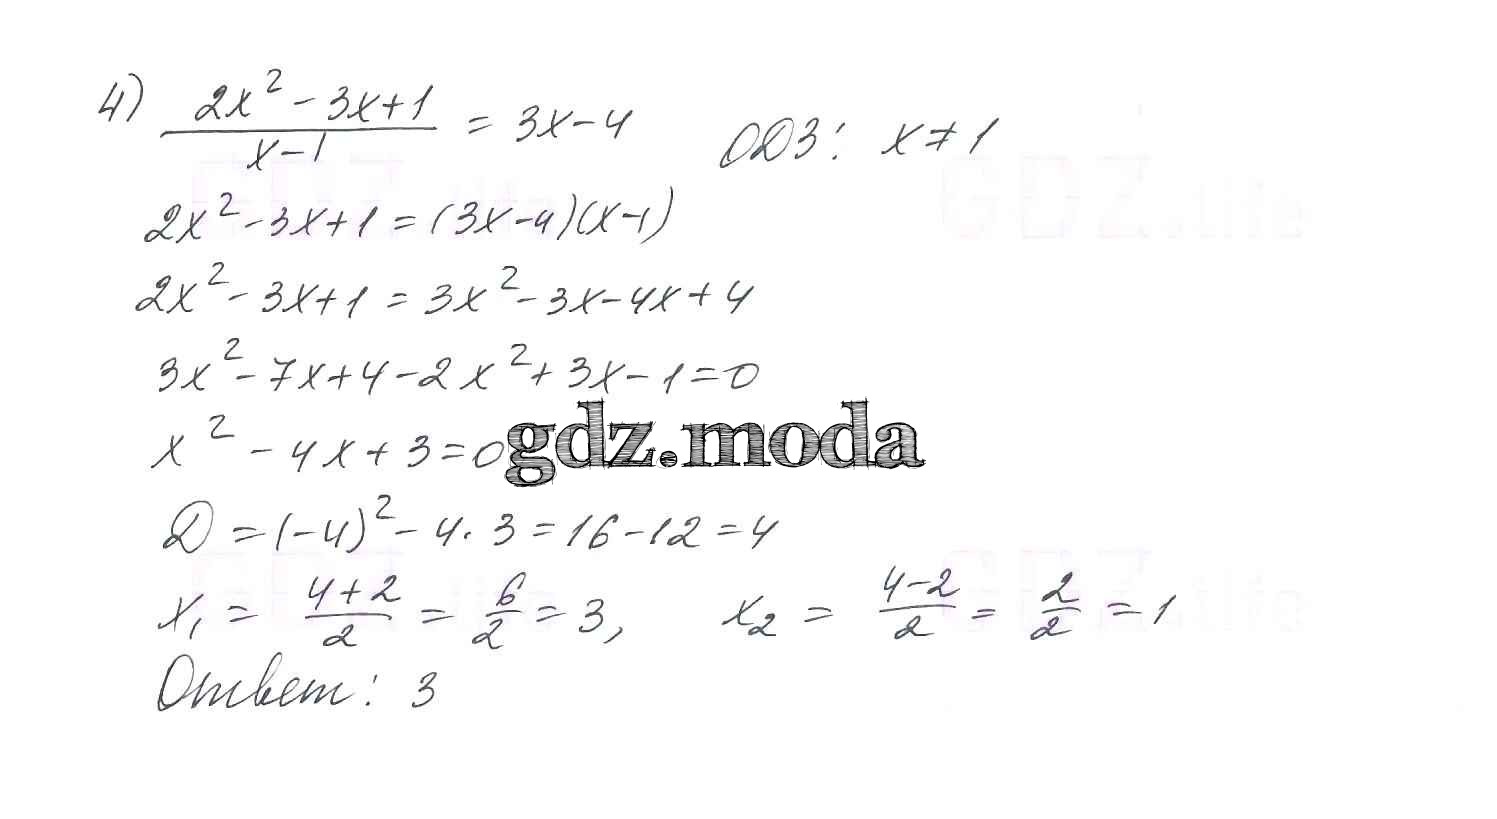 4) (2x² - 3x + 1)/(x - 1) = 3x - 4   ОДЗ: x ≠ 1
2x² - 3x + 1 = (3x - 4)(x - 1)
2x² - 3x + 1 = 3x² - 3x - 4x + 4
3x² - 7x + 4 - 2x² + 3x - 1 = 0
x² - 4x + 3 = 0
gdz.moda
Д = (-4)² - 4·3 = 16 - 12 = 4
x₁ = (4 + 2)/2 = 6/2 = 3,   x₂ = (4 - 2)/2 = 2/2 = 1
Ответ: 3
GDZ.life
GDZ.life
GDZ.life
GDZ.life